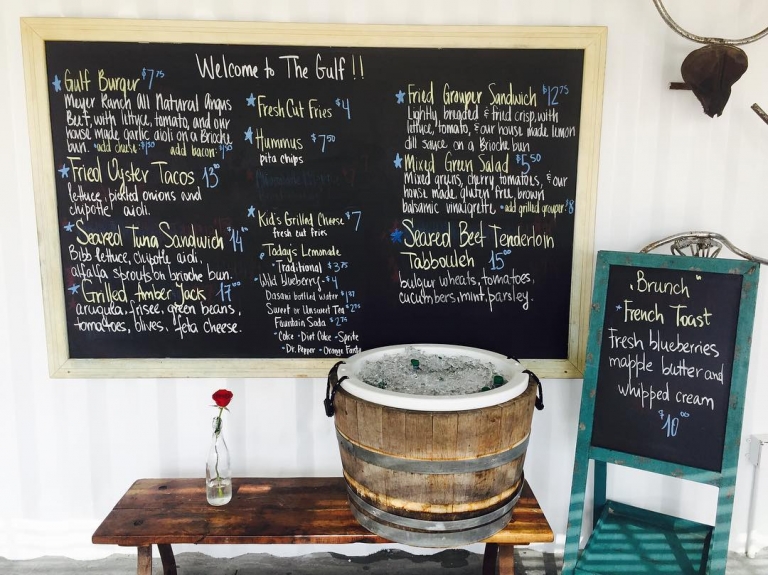 Welcome to The Gulf!!
Gulf Burger $7.75
Meyer Ranch All Natural Angus
Beef, with lettuce, tomato, and our
house made garlic aioli on a Brioche
bun. *add cheese $1.50 add bacon $1.50
Fried Oyster Tacos 13.00
lettuce, pickled onions and
chipotle aioli.
Seared Tuna Sandwich $14.00
Bibb lettuce, chipotle aioli,
alfalfa sprouts on brioche bun.
Grilled Amber Jack 17.00
arugula, frisee, green beans,
tomatoes, olives, feta cheese.
Fresh Cut Fries $4
Hummus $7.50
pita chips
Kid's Grilled Cheese $7
fresh cut fries
Today's Lemonade
*Traditional $3.75
*Wild Blueberry $4
Dasani bottled water
Sweet or Unsweet Tea
Fountain Soda $2.75
*Coke -Diet Coke -Sprite
-Dr. Pepper -Orange Fanta
Fried Grouper Sandwich $12.75
Lightly breaded & fried crisp, with
lettuce, tomato, & our house made lemon
dill sauce on a Brioche bun
Mixed Green Salad $5.50
Mixed greens, cherry tomatoes, & our
house made gluten free brown
balsamic vinaigrette *add grilled grouper $8
Seared Beef Tenderloin
Tabbouleh 15.00
bulgur wheats, tomatoes,
cucumbers, mint, parsley.
"Brunch"
*French Toast
Fresh blueberries
mapple butter and
whipped cream
$10.00